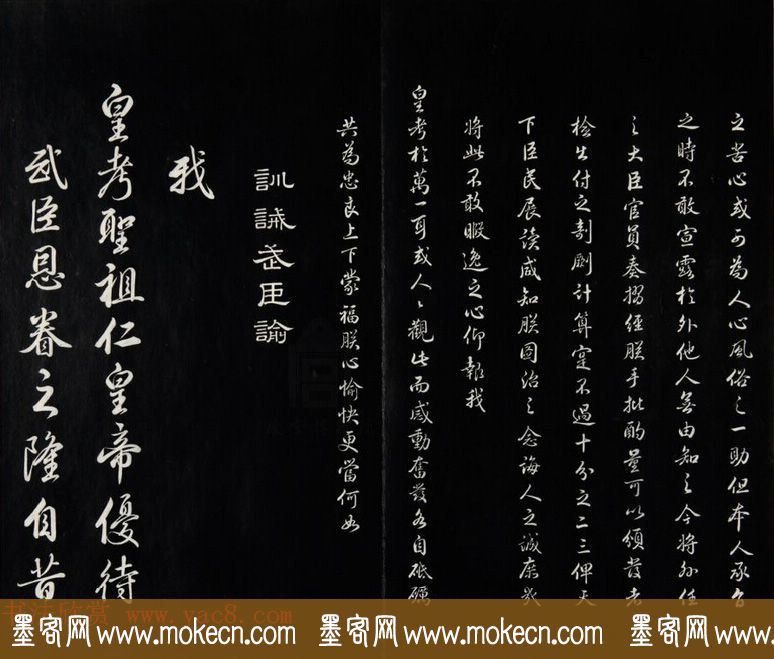 之苦心或可為人心風俗之一助但本人承旨
之時不敢宣露於外他人無由知之今將外任
之大臣官員奏摺經朕手批酌量可以頒發者
檢出付之剞劂計算寔不過十分之二三俾天
下臣民展讀咸知朕圖治之念誨人之誠庶幾
將此不敢暇逸之心仰報我
皇考於萬一耳或人人觀此而感動奮發各自砥礪
共為忠良上下蒙福朕心愉快更當何如
訓誡武臣諭
我
皇考聖祖仁皇帝優待
武臣恩眷之隆自昔
书法欣赏 www.yac8.com
墨客网 www.mokecn.com 墨客网 www.mokecn.com 墨客网 www.mokecn.com